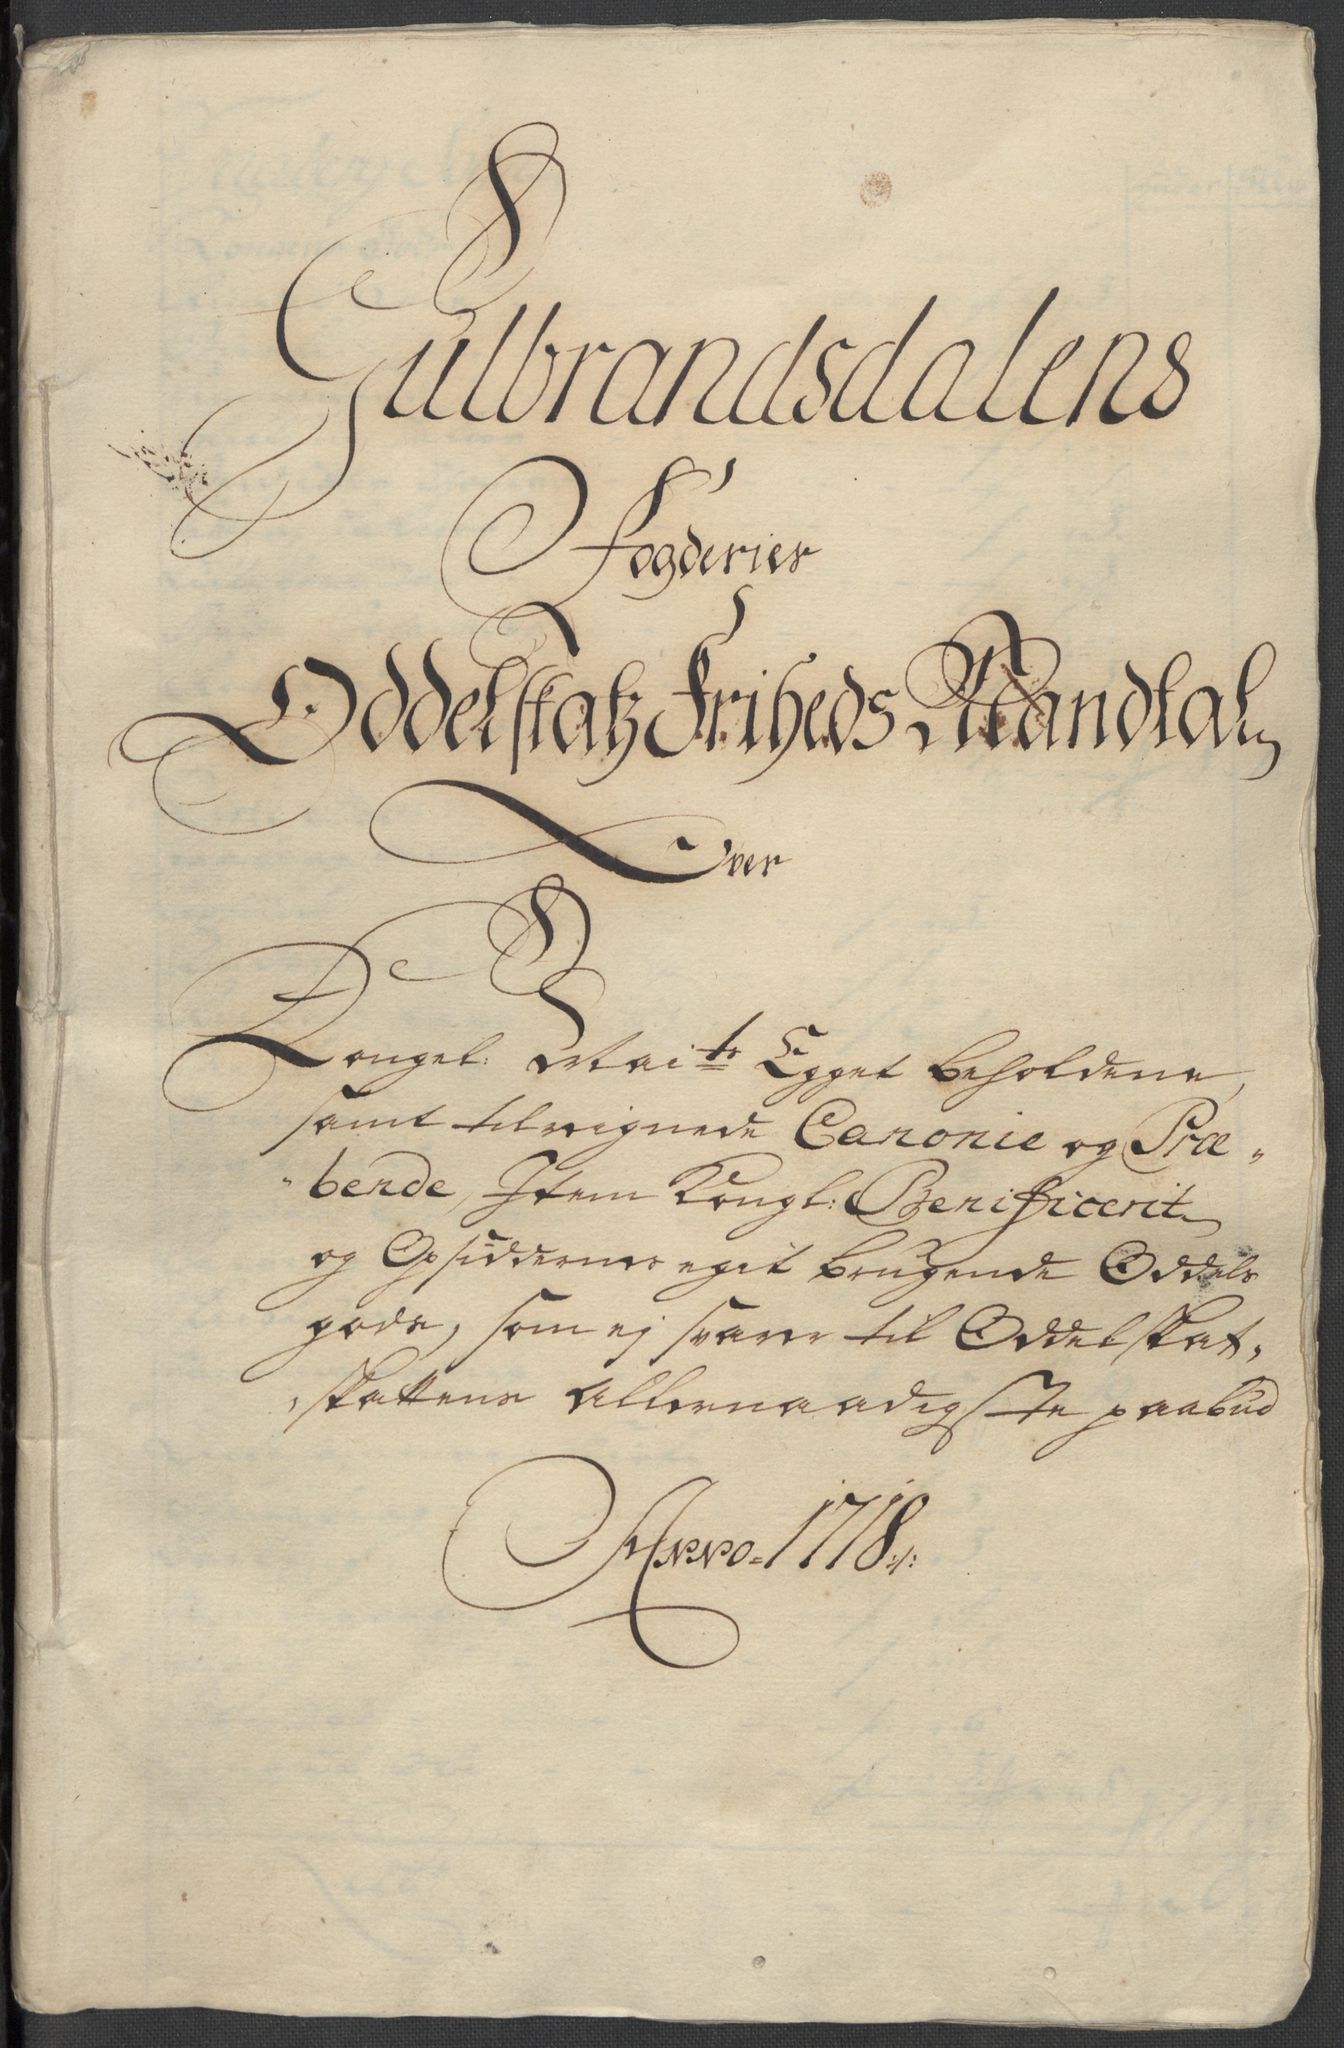 Gulbrandsdalens
Fogderies
Oddelskatz Friheds Mandtal
Over
Kongel: Mai.ts Egget beholdene,
samt tilreignede Canonie og Præ-
bende, Item Kongl: Benificerit
og Opsiddernes eget brugende Oddels
gods, som ej svarer til Oddelskat,
skattens Allernaadigste paabud
Anno 1718